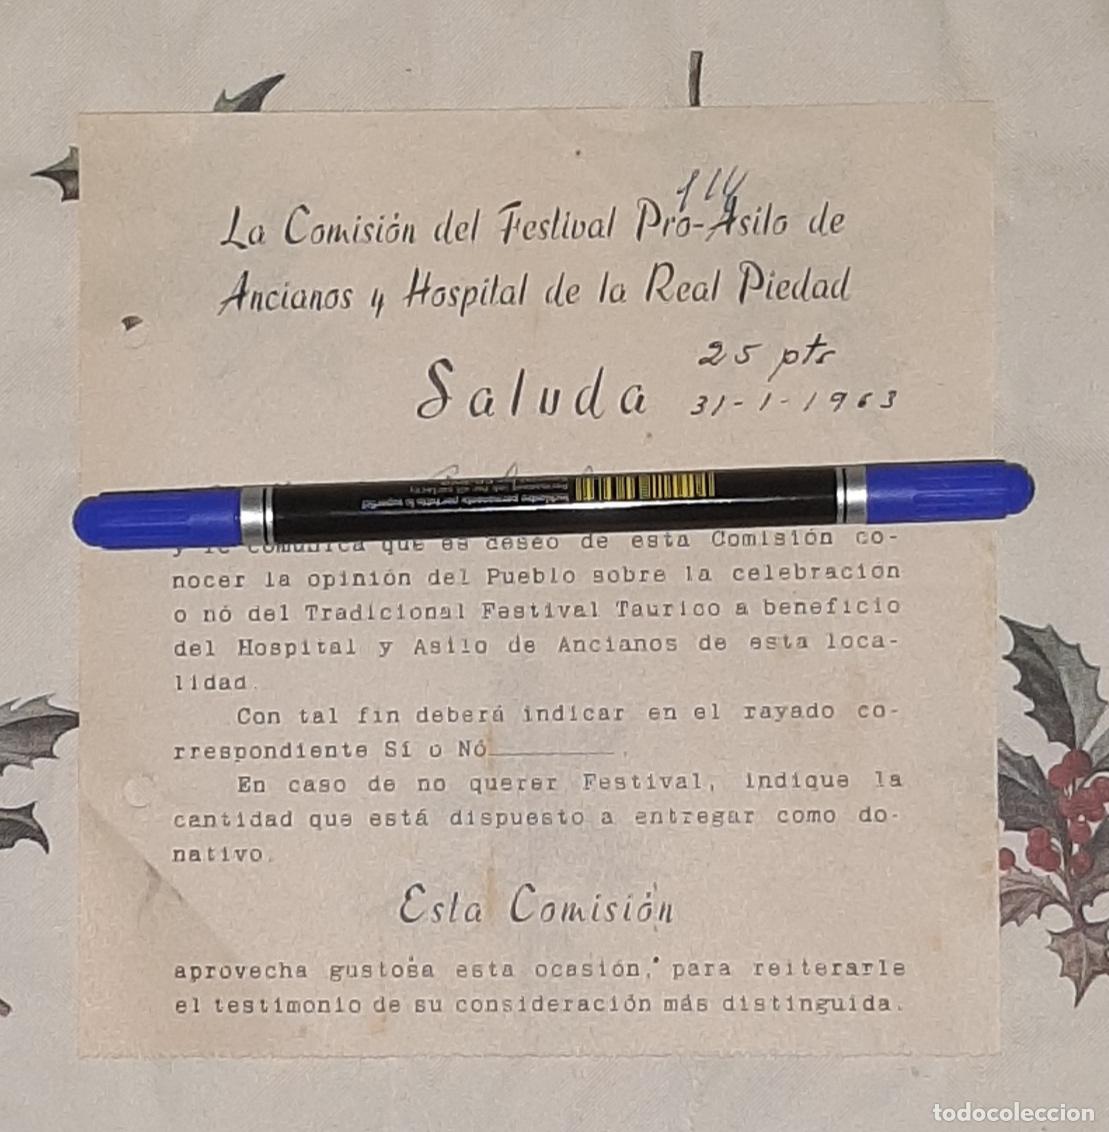 114
La Comisión del Festival Pro-Asilo de
Ancianos y Hospital de la Real Piedad
25 pts
Saluda 31-1-1963
y le comunica que es deseo de esta Comisión co-
nocer la opinión del Pueblo sobre la celebración
o nó del Tradicional Festival Taurico a beneficio
del Hospital y Asilo de Ancianos de esta loca-
lidad.
Con tal fin deberá indicar en el rayado co-
rrespondiente Sí o Nó________.
En caso de no querer Festival, indique la
cantidad que está dispuesto a entregar como do-
nativo.
Esta Comisión
aprovecha gustosa esta ocasión, para reiterarle
el testimonio de su consideración más distinguida.
todocoleccion